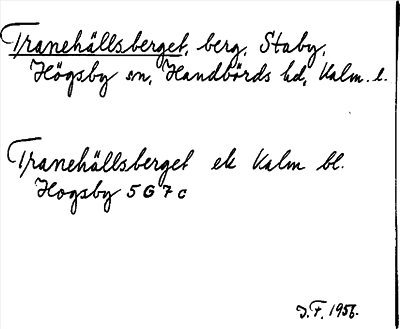 Tranehällsberget, berg, Staby,
Högsby sn, Handbörds hd, Kalm. l.
Tranehällsberget ek Kalm bl.
Hogsby 5G7c
J.F. 1956.